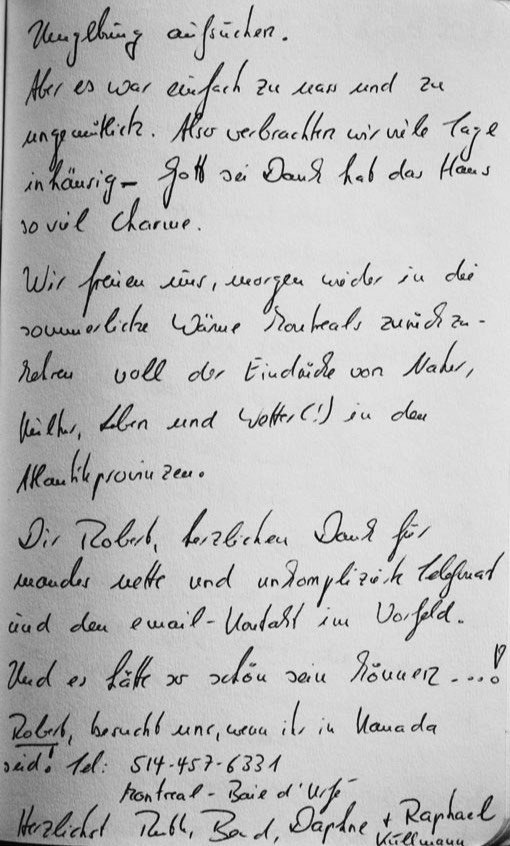 Umgebung aufsuchen.
Aber es war einfach zu nass und zu
ungemütlich. Also verbrachten wir viele Tage
inhäusig – Gott sei Dank hat das Haus
so viel Charme.
Wir freuen uns, morgen wieder in die
sommerliche Wärme Montreals zurückzu-
kehren voll der Eindrücke von Natur,
Kultur, Leben und Wetter(!) in den
Atlantikprovinzen.
Dir Robert, herzlichen Dank für
manches nette und unkomplizierte Telefonat
und den email-Kontakt im Vorfeld.
Und es hätte so schön sein können ...!
Robert, besucht uns, wenn ihr in Kanada
seid! Tel: 514-457-6331
Montreal - Baie d'Urfé
Herzlichst Ruth, Bernd, Daphne + Raphael
Küllmann